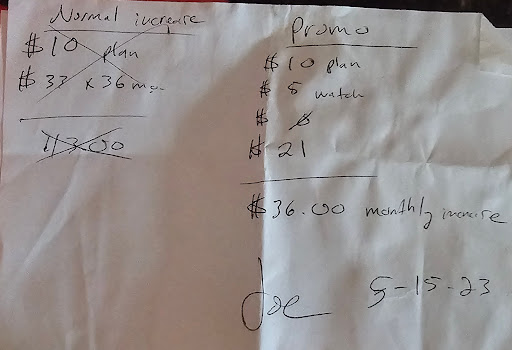 Normal increase
$10 plan
$33 x 36 mo.
43.00
Promo
$10 plan
$5 watch
$
$21
$36.00 monthly increase
Joe 5-15-23